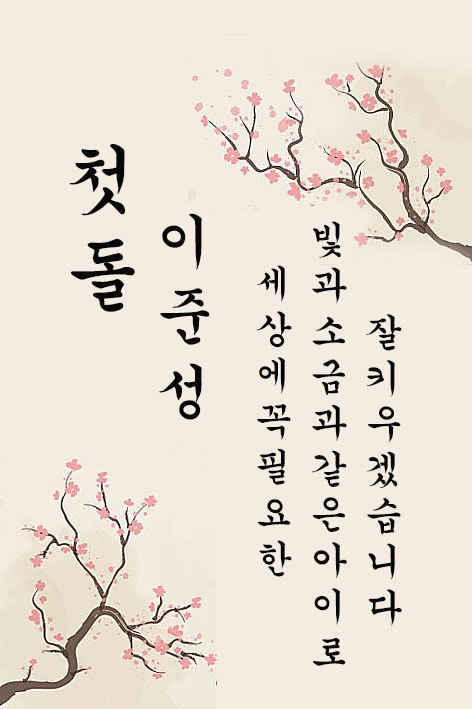 첫돌
이준성
세상에꼭필요한
빛과소금과같은아이로
잘키우겠습니다